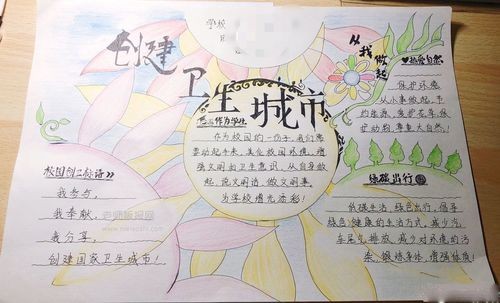 学校
创建
卫生城市
从我做起
作为学生
作为校园的一份子,我们需
要动起手来,美化校园环境,增
强文明的卫生意识,从自身做
起,说文明语,做文明事,
为学校增光添彩!
校园创卫标语
我参与,
我奉献,
我分享,
创建国家卫生城市!
老师板报网
热爱自然
保护环境
从小事做起,节
约能源,爱护花草,保
护动物,尊重大自然!
绿色出行
低碳生活,绿色出行,倡导
绿色健康的生活方式,减少汽
车尾气排放,减少对环境的污
染,锻炼身体,增强体质!